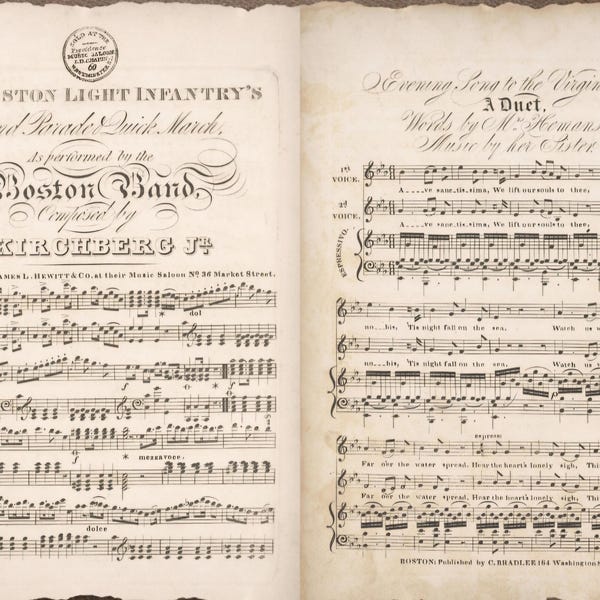 SOLD AT THE
Providence
MUSIC SALOON
60
STON LIGHT INFANTRY'S
nd Parade & Quick March,
As performed by the
Boston Band,
Composed by
KIRCHBERG Jr.
AMES L. HEWITT & Co, at their Music Saloon No. 36 Market Street.
dol
f
f
mezzavoce.
dolce
Evening Song to the Virgin
A Duet,
Words by Mrs. Hemans
Music by her Sister
1st
VOICE.
A___ve sanc_tis_sima, We lift our souls to thee,
2d
VOICE.
A___ve sanc_tis_sima, We lift our souls to thee,
ESPRESSIVO.
no__bis, 'Tis night fall on the sea. Watch us w
no__bis, 'Tis night fall on the sea. Watch us w
p
espress
Far o'er the water spread. Hear the heart's lonely sigh, Thi
Far o'er the water spread. Hear the heart's lonely sigh, Thi
BOSTON: Published by C. BRADLEE 164 Washington S